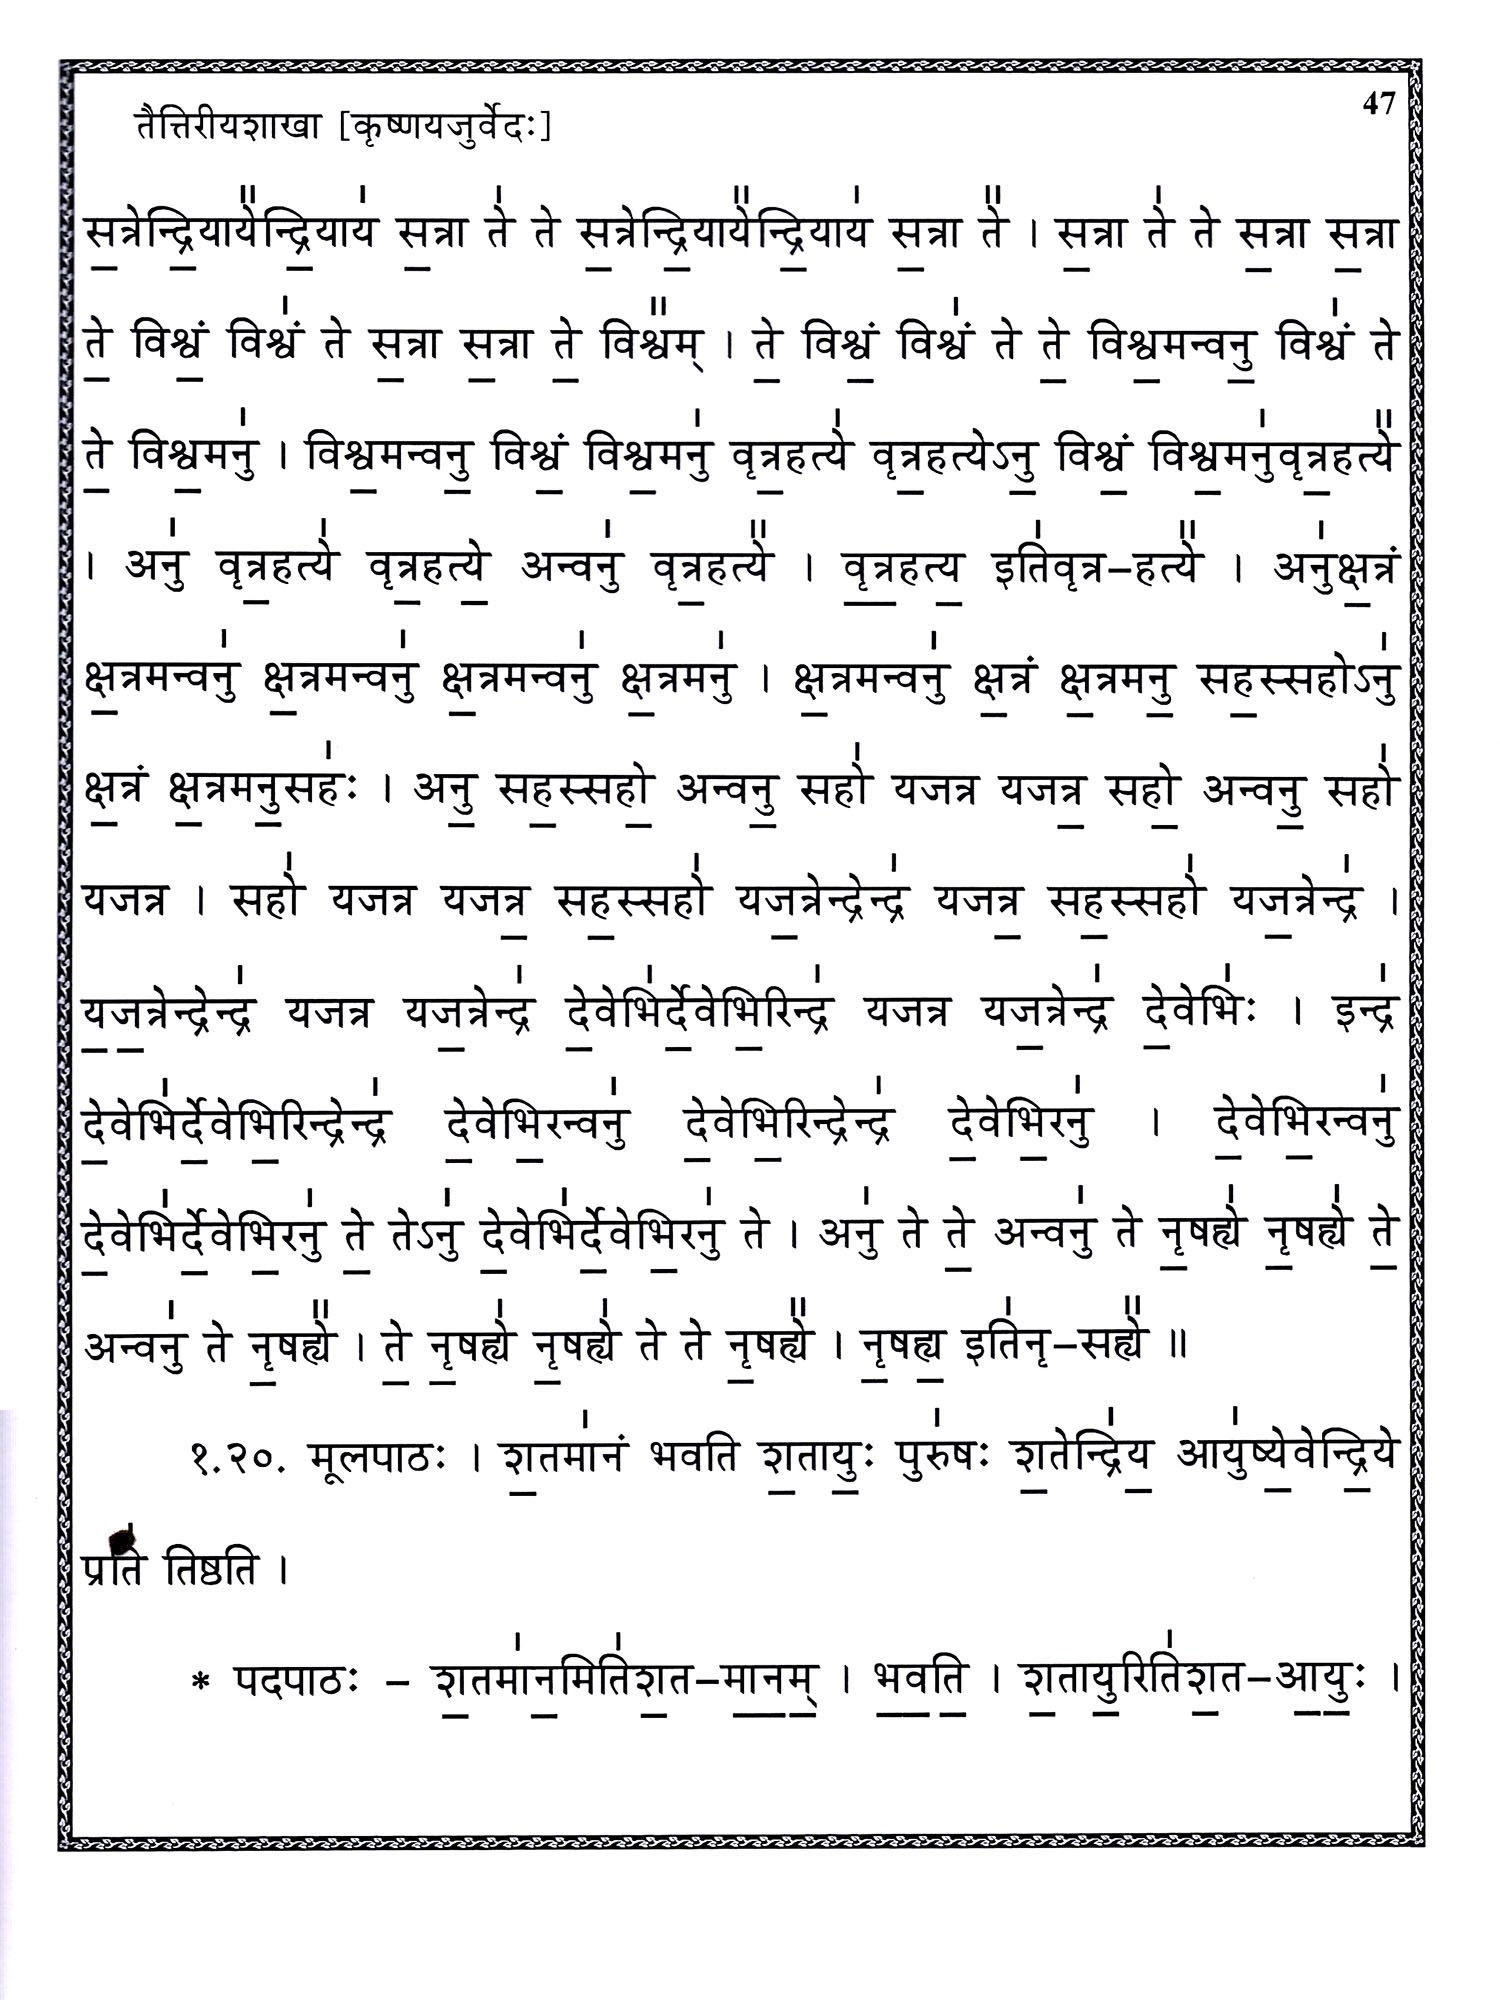 47
तैत्तिरीयशाखा [कृष्णयजुर्वेदः]
स॒त्रेन्द्रि॒याये᳚न्द्रि॒याय॑ स॒त्रा ते॑ ते स॒त्रेन्द्रि॒याये᳚न्द्रि॒याय॑ स॒त्रा ते᳚ । स॒त्रा ते॑ ते स॒त्रा स॒त्रा
ते॒ विश्वं॒ विश्वं॑ ते स॒त्रा स॒त्रा ते॒ विश्व᳚म् । ते॒ विश्वं॒ विश्वं॑ ते ते॒ विश्व॒मन्वनु॒ विश्वं॑ ते
ते॒ विश्व॒मनु॑ । विश्व॒मन्वनु॒ विश्वं॒ विश्व॒मनु॑ वृत्र॒हत्ये॑ वृत्र॒हत्येऽनु॒ विश्वं॒ विश्व॒मनु॑वृत्र॒हत्ये᳚
। अनु॑ वृत्र॒हत्ये॑ वृत्र॒हत्ये॒ अन्वनु॑ वृत्र॒हत्ये᳚ । वृ॒त्र॒हत्य॒ इति॑वृत्र–हत्ये᳚ । अनु॑क्ष॒त्रं
क्ष॒त्रमन्वनु॑ क्ष॒त्रमन्वनु॑ क्ष॒त्रमन्वनु॑ क्ष॒त्रमनु॑ । क्ष॒त्रमन्वनु॑ क्ष॒त्रं क्ष॒त्रमनु॒ सह॒स्सहोऽनु॑
क्ष॒त्रं क्ष॒त्रमनु॒सहः॑ । अनु॒ सह॒स्सहो॒ अन्वनु॒ सहो॑ यजत्र यजत्र॒ सहो॒ अन्वनु॒ सहो॑
यजत्र । सहो॑ यजत्र यजत्र॒ सह॒स्सहो॑ यज॒त्रेन्द्रेन्द्र॑ यजत्र॒ सह॒स्सहो॑ यज॒त्रेन्द्र॑ ।
य॒ज॒त्रेन्द्रेन्द्र॑ यजत्र यज॒त्रेन्द्र॑ दे॒वेभि॑र्दे॒वेभि॒रिन्द्र॑ यजत्र यज॒त्रेन्द्र॑ दे॒वेभिः॑ । इन्द्र॑
दे॒वेभि॑र्दे॒वेभि॒रिन्द्रेन्द्र॑ दे॒वेभि॒रन्वनु॑ दे॒वेभि॒रिन्द्रेन्द्र॑ दे॒वेभि॒रनु॑ । दे॒वेभि॒रन्वनु॑
दे॒वेभि॑र्दे॒वेभि॒रनु॑ ते॒ तेऽनु॑ दे॒वेभि॑र्दे॒वेभि॒रनु॑ ते । अनु॑ ते ते॒ अन्वनु॑ ते नृ॒षह्ये॑ नृ॒षह्ये॑ ते॒
अन्वनु॑ ते नृ॒षह्ये᳚ । ते॒ नृ॒षह्ये॑ नृ॒षह्ये॑ ते ते नृ॒षह्ये᳚ । नृ॒षह्य॒ इति॑नृ–सह्ये᳚ ॥
१.२०. मूलपाठः । श॒तमा॑नं भवति श॒तायुः॒ पुरु॑षः श॒तेन्द्रि॑य॒ आयु॑ष्ये॒वेन्द्रि॒ये
प्रति॑ तिष्ठति ।
* पदपाठः – श॒तमा॑न॒मिति॑श॒त–मा॒न॒म् । भ॒व॒ति॒ । श॒तायु॒रिति॑श॒त–आ॒युः॒ ।